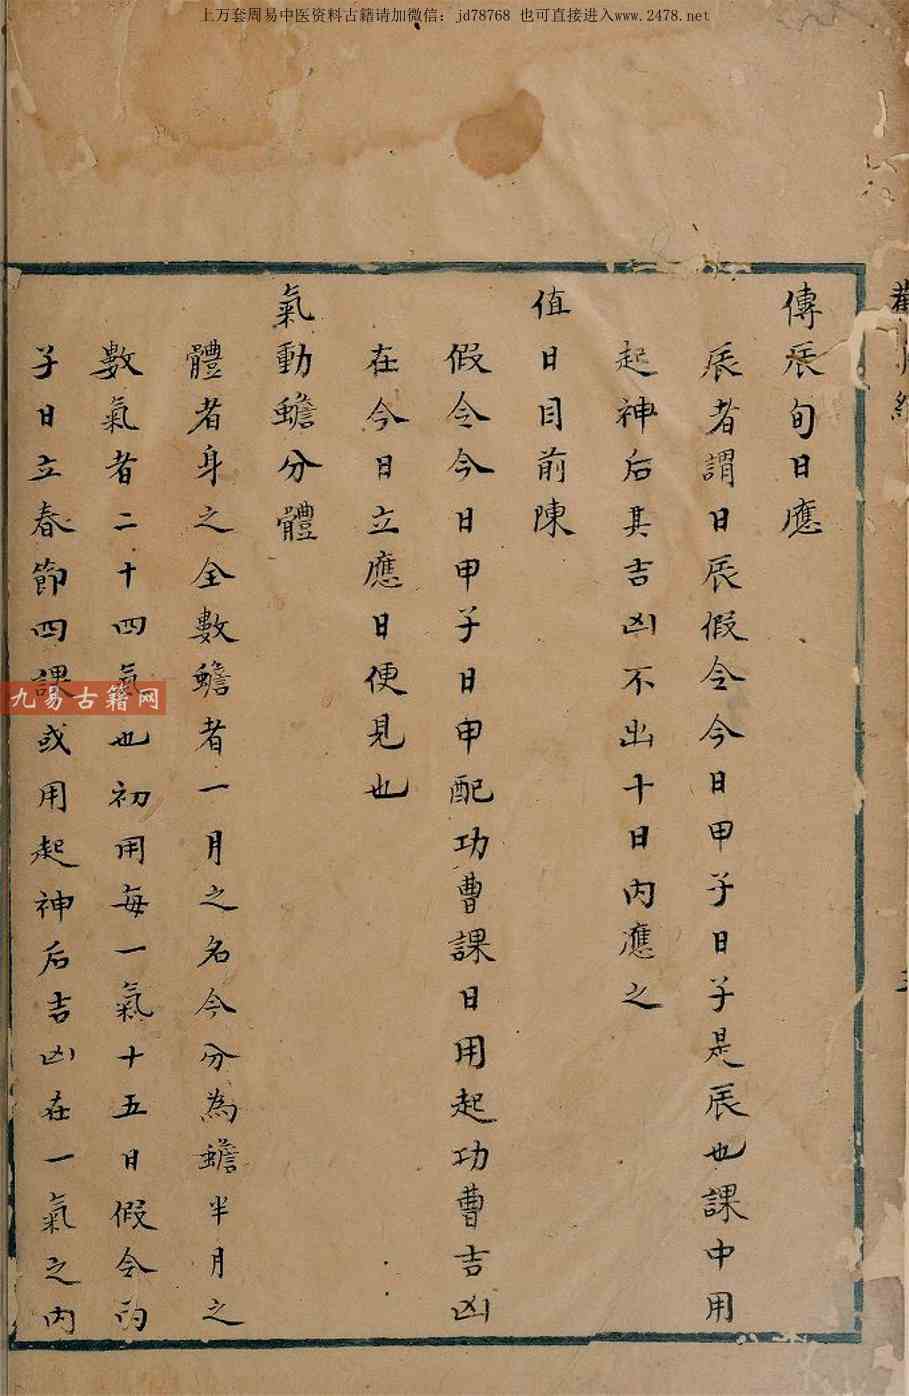 上万套周易中医资料古籍请加微信：jd78768 也可直接进入www.2478.net
傳辰旬日應
辰者謂日辰假令今日甲子日子是辰也課中用
起神后其吉凶不出十日内應之
值日目前陳
假令今日甲子日甲配功曹課日用起功曹吉凶
在今日立應日便見也
氣動蟾分體
體者身之全數蟾者一月之名今分為蟾半月之
數氣者二十四氣也初用每一氣十五日假令丙
子日立春節四課或用起神后吉凶在一氣之内
九易古籍网